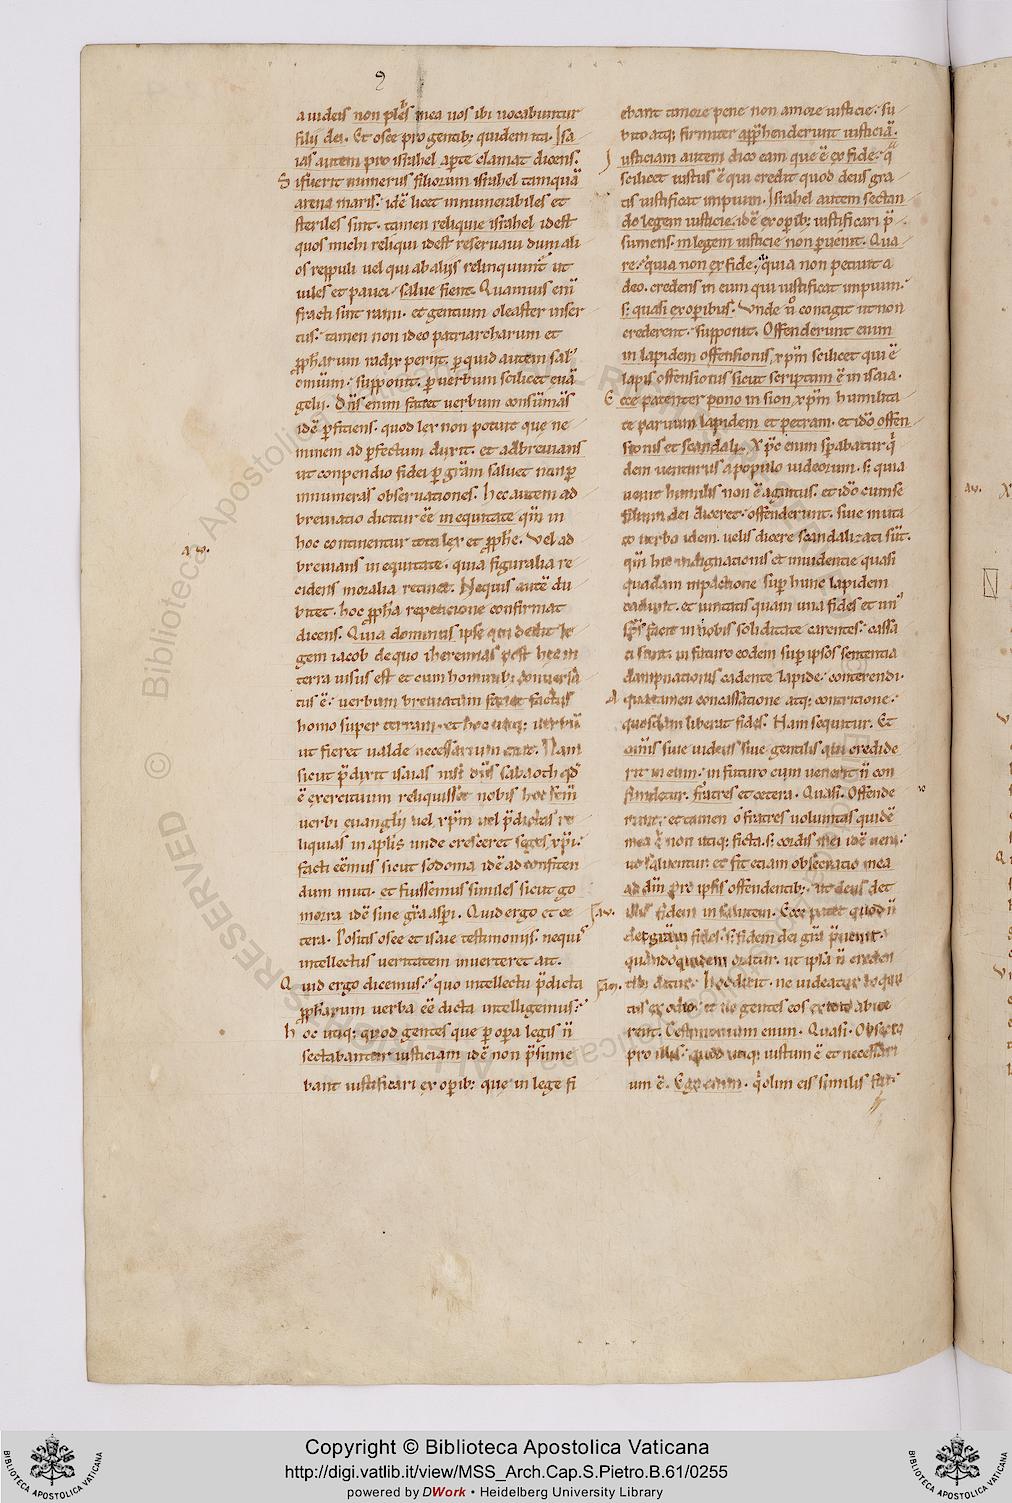 a uideis non plēs mea uos ibi uocabuntur
filij dei. Et osee pro gentib; quidem ita. Isa
ias autem pro israhel aperte clamat dicens.
Si fuerit numerus filiorum israhel tamquā
arena maris. idē licet innumerabiles et
steriles sint. tamen reliquie israhel idest
quos michi reliqui idest reseruaui dum ali
os reppuli uel qui ab alijs relinquunt ut
uiles et pauci. salue fient. Quamuis eni
fracti sint rami. et gentium oleaster inser
tus. tamen non ideo patriarcharum et
ꝓphetarum radix periit. ꝑ quid autem sal
omnium. supponit. ꝑ uerbum scilicet euā
gelij. Dn̄s enim faciet uerbum consūmās
idē ꝑficiens. quod lex non potuit que ne
minem ad ꝑfectum duxit. et adbreuians
ut conpendio fidei ꝑ grām saluet non ꝑ
innumeras obseruationes. hec autem ad
breuiatio dicitur eē in equitate qm̄ in
hoc continentur tota lex et ꝓphe. Vel ad
breuians in equitate. quia figuralia re
cidens moralia retinet. Nequis autē du
bitet. hoc ꝓpha repeticione confirmat
dicens. Quia dominus ipse qui dedit le
gem iacob de quo iheremias post hec in
terra uisus est et cum hominib; conuersa
tus ē. uerbum breuiatum faciet factus
homo super terram. et hoc utiq; uerbū
ut fieret ualde necessarium erat. Nam
sicut p̄dixit isaias nisi dn̄s sabaoth qd̄
ē exercituum reliquisset nobis hoc sem̄
uerbi euanglij uel xp̄m uel p̄dictas re
liquias in aplis unde cresceret seges xp̄i.
facti eēmus sicut sodoma idē ad confiten
dum muta. et fuissemus similes sicut go
morra idē sine grā aspi. Quid ergo et ce
tera. Positis osee et isaie testimonijs. nequis
intellectus ueritatem inuerteret ait.
Quid ergo dicemus. quo intellectu p̄dicta
ꝓpharum uerba eē dicta intelligemus.
hoc utiq; quod gentes que ꝑ opa legis n̄
sectabantur iusticiam idē non p̄sume
bant iustificari ex opib; que in lege fi
ebant timore pene non amore iusticie. su
bito atq; firmiter appħenderunt iusticiā.
Iusticiam autem dico eam que ē ex fide. q̄
scilicet iustus ē qui credit quod deus gra
tis iustificat impium. Israhel autem sectan
do legem iusticie. idē ex opib; iustificari p̄
sumens. in legem iusticie non peruenit. Qua
re. quia non ex fide. quia non petiuit a
deo. credens in eum qui iustificat impium.
s; quasi ex operibus. Vnde n̄ contigit ut non
crederent. supponit. Offenderunt enim
in lapidem offensionis xp̄m scilicet qui ē
lapis offensionis sicut scriptum ē in isaia.
Ecce patenter pono in sion xp̄m humilita
te paruum lapidem et petram. et ido offen
sionis et scandali. Xp̄c enim sperabatur q
dem uenturus a populo iudeorum. s; quia
uenit humilis non ē agnitus. et ido cum se
filium dei diceret. offenderunt. siue muta
to uerbo idem. uelis dicere scandalizati sūt.
qm̄ hic indignationis et inuidentie quasi
quadam inpactione sup hunc lapidem
cadunt. et unitatis quam una fides et un
sp̄s facit in nobis soliditate carentes. cassa
ti sunt. in futuro eodem sup ipsos sententia
dampnationis cadente lapide. conterendi.
A qua tamen concassatione atq; contricione.
quosdam liberat fides. Nam sequitur. Et
om̄is siue iudeus siue gentilis qui credide
rit in eum. in futuro cum uenerit n̄ con
fundetur. Fratres et cetera. Quasi. Offende
runt. et tamen o fratres uoluntas quidē
mea ē non utiq; ficta. s; cordis mei idē uera.
ut saluentur. et fit etiam obsecratio mea
ad dm̄ pro ipsis offendentib; ut deus det
illis fidem in salutem. Ecce patet quod n̄
det grām fides. s; fidem dei grā p̄uenit.
quandoquidem oratur. ut ipsa n̄ creden
tib; detur. hoc dixit. ne uideatur loqu
tus ex odio. et ne gentes eos ex toto abice
rent. Testimonium enim. Quasi. Obsecro
pro illis. quod utiq; iustum ē et necessari
um ē. Ego enim. q̄ olim eis similis fui.
Aug.
Copyright © Biblioteca Apostolica Vaticana
http://digi.vatlib.it/view/MSS_Arch.Cap.S.Pietro.B.61/0255
powered by DWork • Heidelberg University Library
BIBLIOTECA APOSTOLICA VATICANA
BIBLIOTECA APOSTOLICA VATICANA